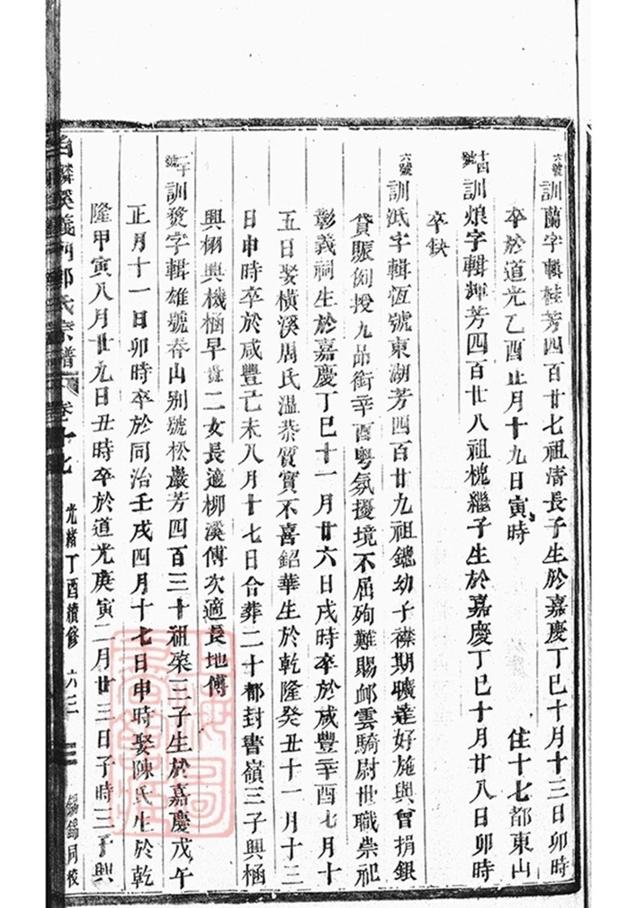 六號 訓蘭字輯桂芳四百廿七祖清長子生於嘉慶丁巳十月十三日卯時
卒於道光乙酉正月十九日寅時 住十七都東山
十四號 訓烺字輯輝芳四百廿八祖槐繼子生於嘉慶丁巳十月廿八日卯時
卒缺
六號 訓泜字輯恆號東湖芳四百廿九祖鏸幼子襟期曠達好施與曾捐銀
貸賑例授九品銜辛酉粵氛擾境不屈殉難賜卹雲騎尉世職崇祀
彰義祠生於嘉慶丁巳十一月廿六日戌時卒於咸豐辛酉七月十
五日娶橫溪周氏溫恭質實不喜鉛華生於乾隆癸丑十一月十三
日申時卒於咸豐己未八月十七日合葬二十都封書嶺三子興極
興栩興機極早世二女長適柳溪傅次適長地傅
二十號 訓燹字輯雄號春山別號松巖芳四百三十祖燊三子生於嘉慶戊午
正月十一日卯時卒於同治壬戌四月十七日申時娶陳氏生於乾
隆甲寅八月廿九日丑時卒於道光庚寅二月廿三日子時三子興
白麟溪義門鄭氏宗譜 卷十七 光緒丁酉續修 六三